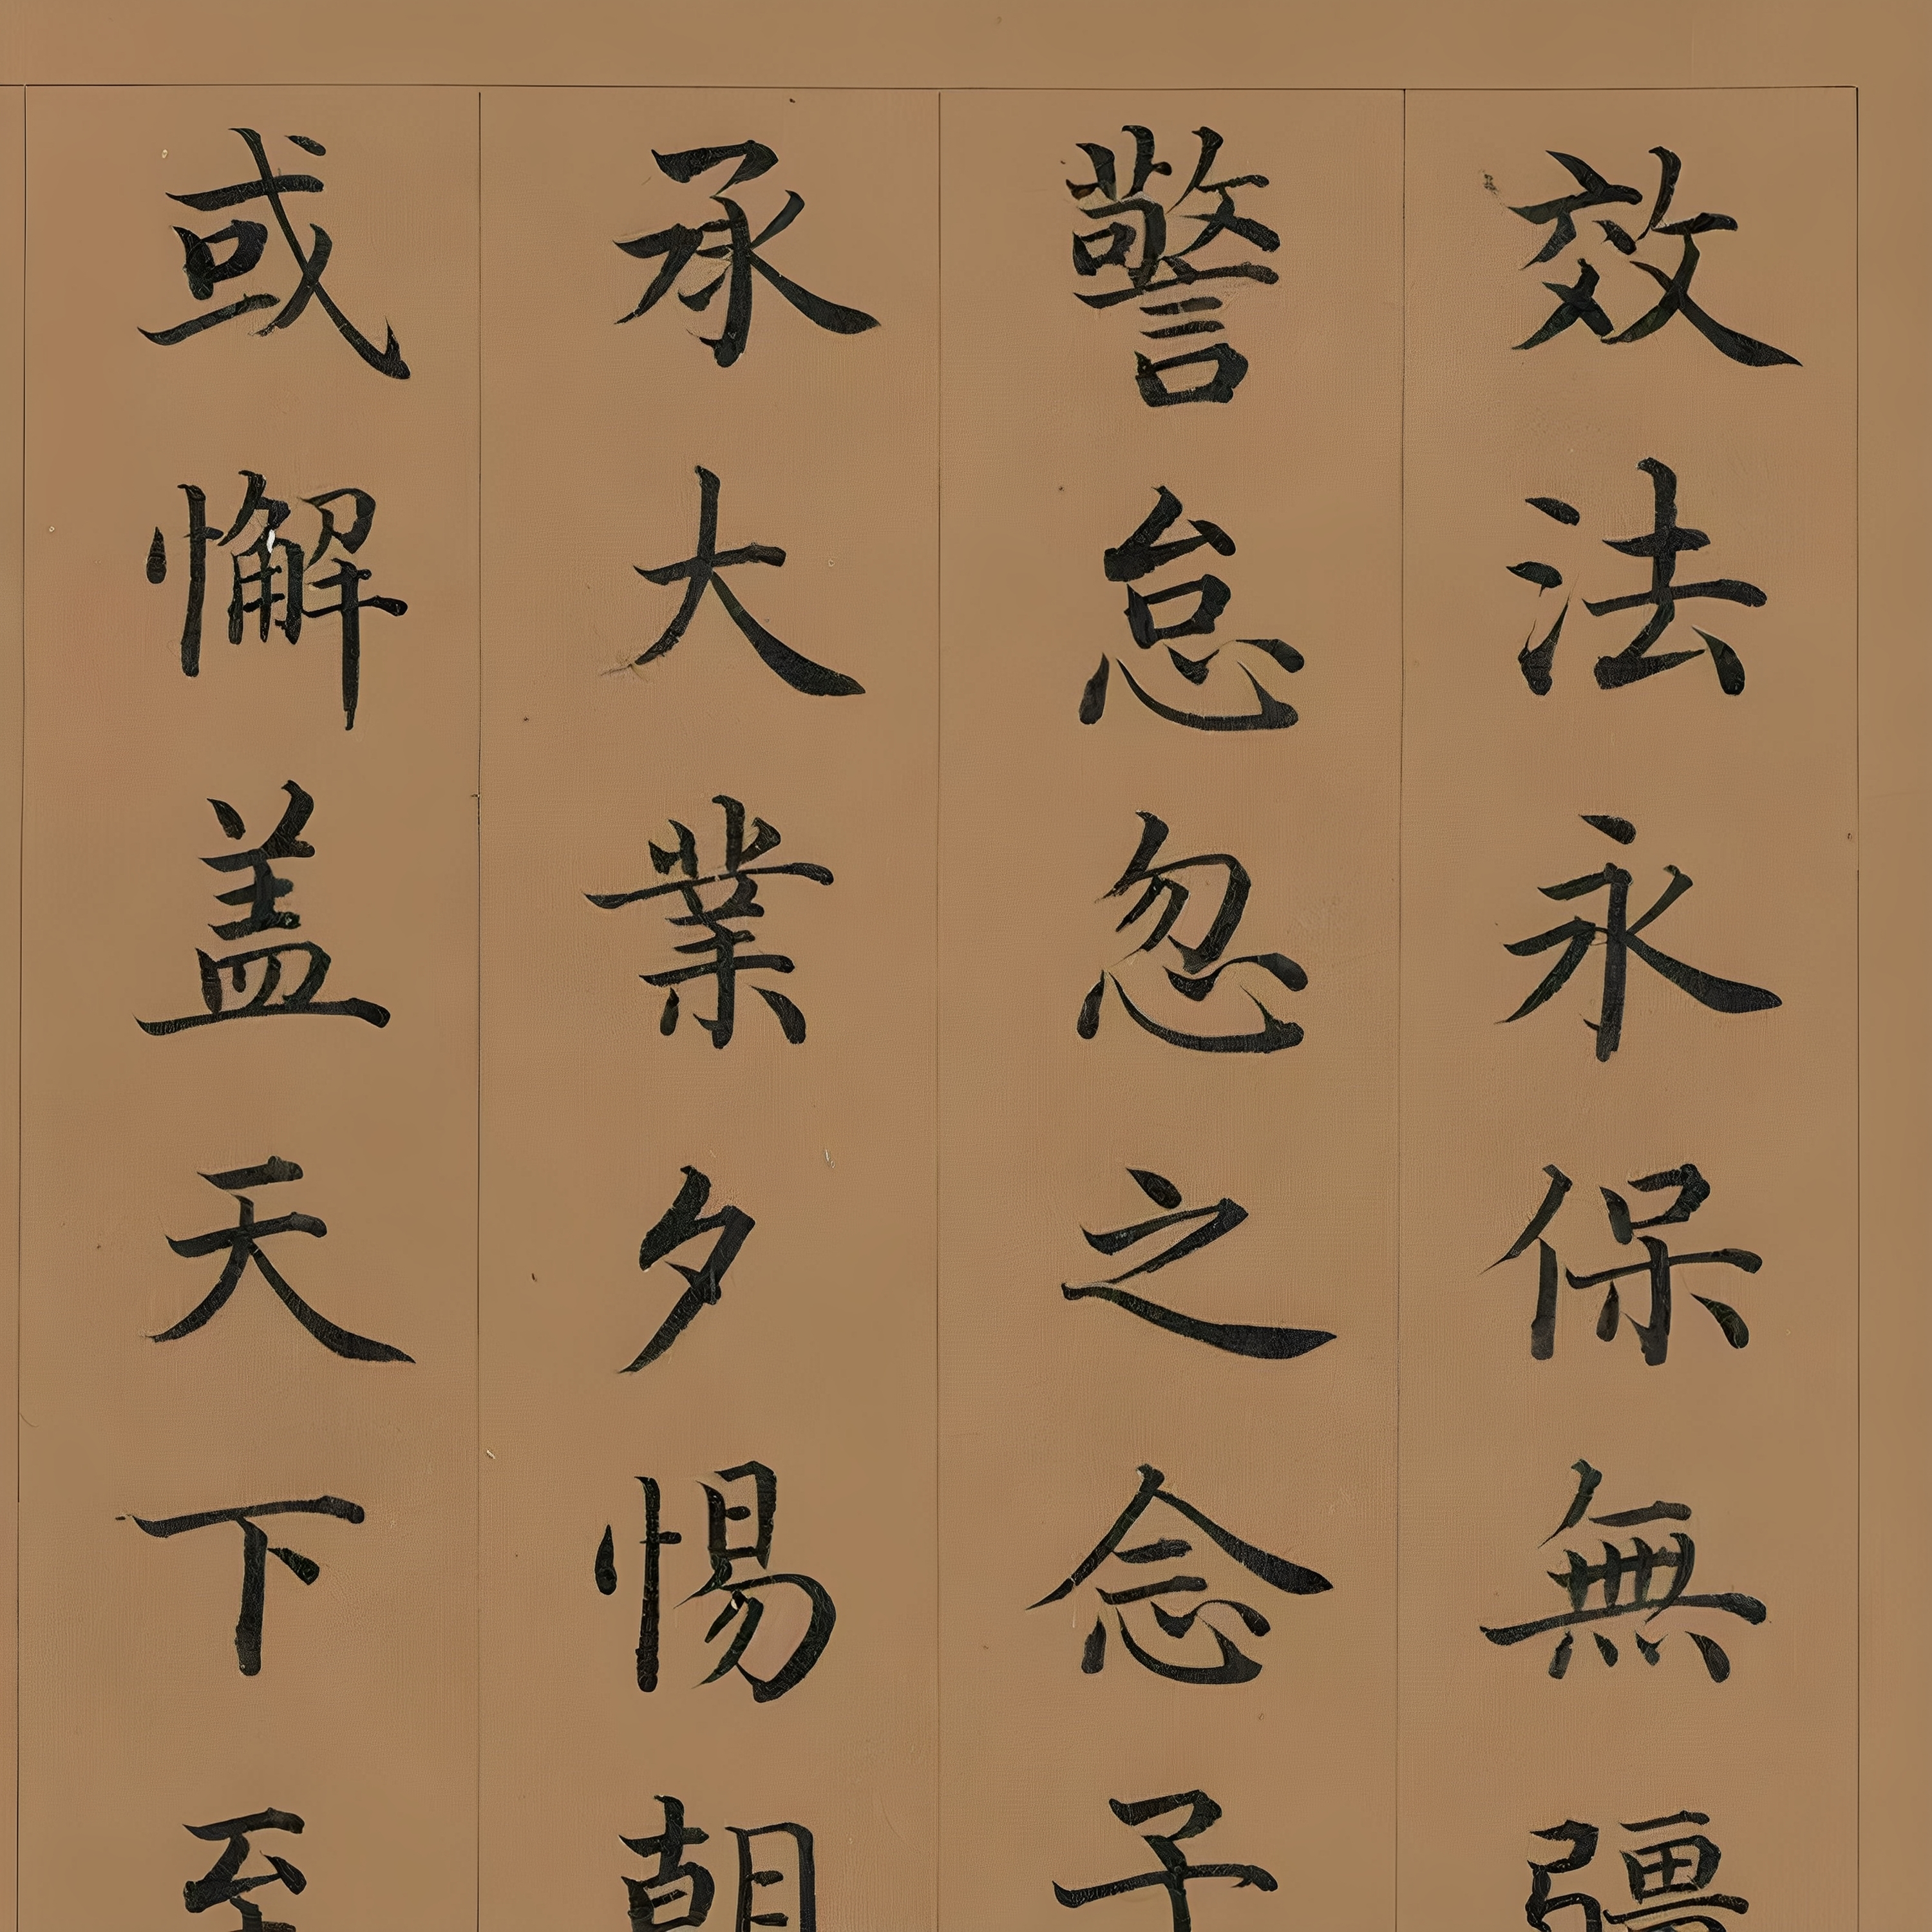 效法永保無疆
警怠忽之念子
承大業夕惕朝
或懈盖天下至